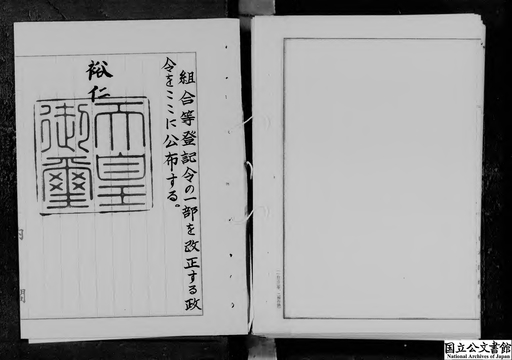 組合等登記令の一部を改正する政
令をここに公布する。
裕仁
天皇
御璽
国立公文書館
National Archives of Japan